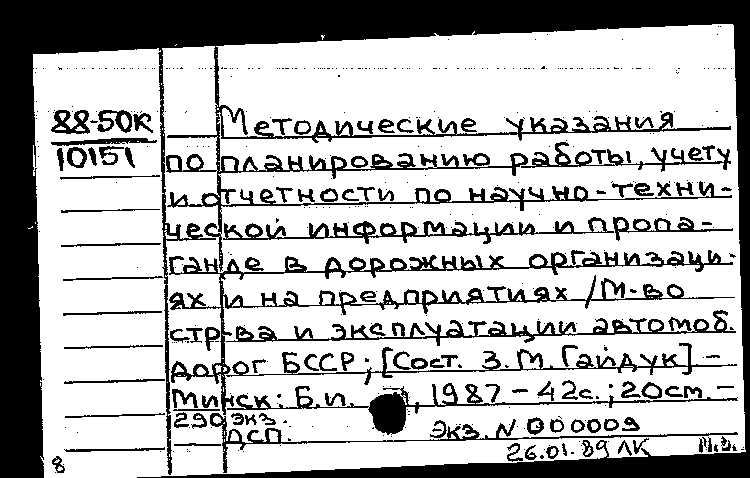 88-50К
10151
Методические указания
по планированию работы, учету
и отчетности по научно-техни-
ческой информации и пропа-
ганде в дорожных организаци-
ях и на предприятиях / М-во
стр-ва и эксплуатации автомоб.
дорог БССР; [Сост. З. М. Гайдук] -
Минск: Б.и., 1987 - 42с.; 20см. -
290 экз.
ДСП. Экз. N 000009
26.01.89 ЛК
8